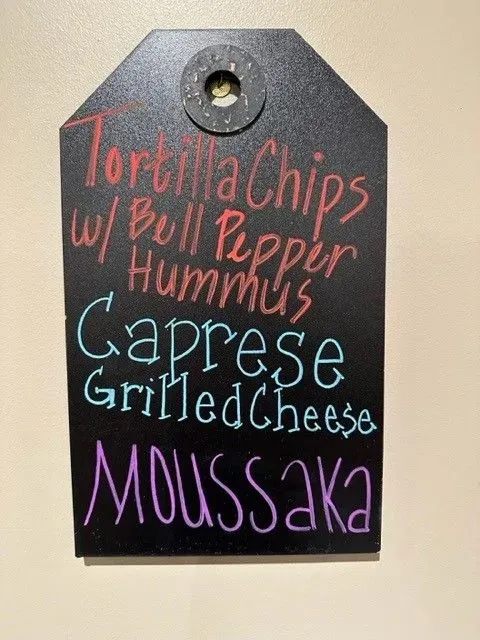 Tortilla Chips
w/ Bell Pepper
Hummus
Caprese
Grilled Cheese
Moussaka